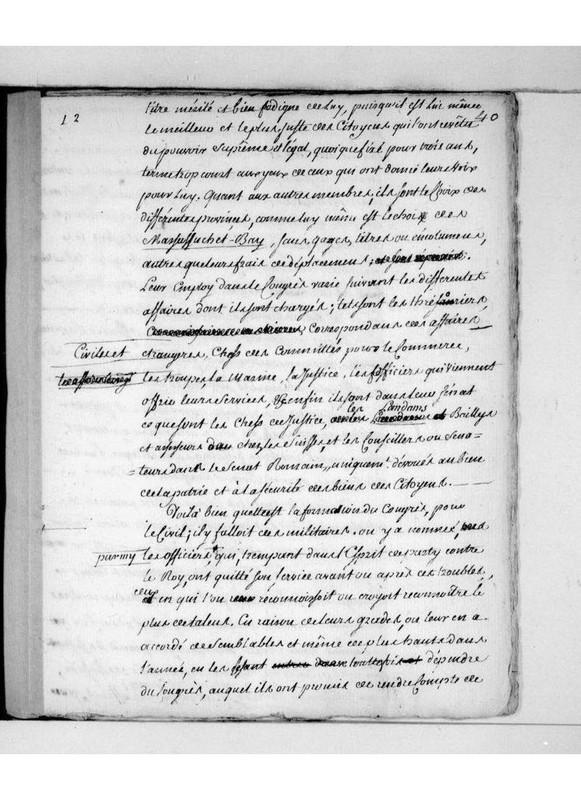 12
40
l'être mérité et bien digne de luy, puisqu'il est lui même
le meilleur et le plus juste des Citoyens qui l'ont revêtu
du pouvoir suprême et légal, quoique fixé pour trois ans,
terme trop court aux yeux de ceux qui ont donné leurs voix
pour luy. Quant aux autres membres, ils sont le Choix des
différentes provinces, comme luy même est le choix des
Massassuchet-Bay, sans gages, titres ou émolumens,
autres que leurs frais de déplacement;
Leur Employ dans le Congrès varie suivant les différentes
affaires dont ils sont chargés; tels sont les thrésoriers,
Correspondans des affaires
Civiles et étrangères, Chefs des Committés pour le Commerce,
les troupes, la Marine, la Justice, les officiers qui viennent
offrir leurs services, Enfin ils sont dans leur sénat
ce que sont les Chefs de Justice, les Landams et Baillifs
et assesseurs chez les Suisses, et les Conseillers ou Sena=
teurs dans le Senat Romain, uniquemt. dévoués au bien
de la patrie et à la sécurité des biens des Citoyens.
Voilà bien quelle est la formation du Congrès, pour
le Civil; il y falloit des militaires. on y a nommé,
parmy les officiers, qui, trempant dans l'Esprit de party contre
le Roy ont quitté son service avant ou après ces troubles,
ceux en qui l'on reconnoissoit ou croyoit reconnoître le
plus de talens. En raison de leurs grades, on leur en a
accordé de semblables et même de plus hauts dans
l'armée, en les fesant dépendre
du Congrès, auquel ils ont promis de rendre Compte de